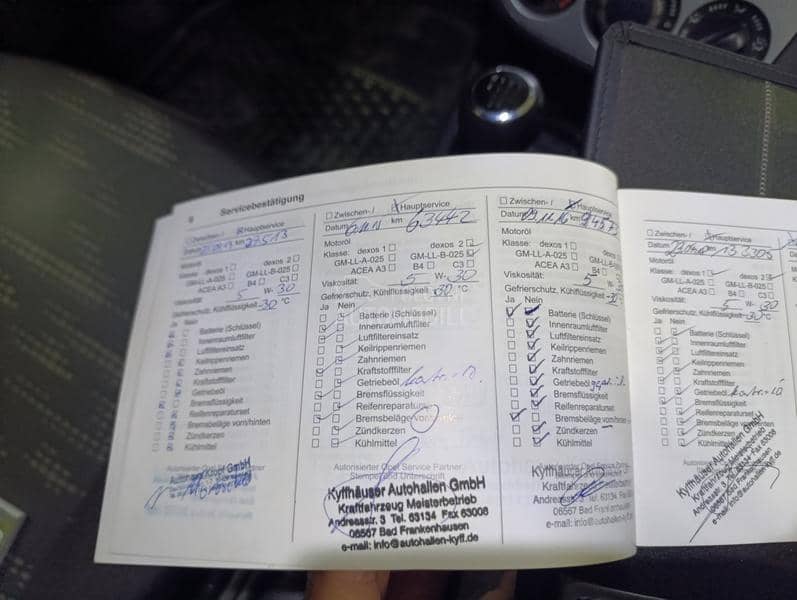 Servicebestätigung
Zwischen-/ Hauptservice
Datum km 27513
Motoröl
Klasse: dexos 1 dexos 2
GM-LL-A-025 GM-LL-B-025
ACEA A3 B4 C3
Viskosität: 5 W-30
Gefrierschutz, Kühlflüssigkeit -30 °C
Ja Nein
Batterie (Schlüssel)
Innenraumluftfilter
Luftfiltereinsatz
Keilrippenriemen
Zahnriemen
Kraftstofffilter
Getriebeöl
Bremsflüssigkeit
Reifenreparaturset
Bremsbeläge vorn/hinten
Zündkerzen
Kühlmittel
Zwischen-/ Hauptservice
Datum km 63442
Motoröl
Klasse: dexos 1 dexos 2
GM-LL-A-025 GM-LL-B-025
ACEA A3 B4 C3
Viskosität: 5 W-30
Gefrierschutz, Kühlflüssigkeit -30 °C
Ja Nein
Batterie (Schlüssel)
Innenraumluftfilter
Luftfiltereinsatz
Keilrippenriemen
Zahnriemen
Kraftstofffilter
Getriebeöl
Bremsflüssigkeit
Reifenreparaturset
Bremsbeläge vorn/hinten
Zündkerzen
Kühlmittel
Autorisierter Opel Service Partner
Stempel und Unterschrift
Kyffhäuser Autohallen GmbH
Kraftfahrzeug Meisterbetrieb
Andreasstr. 3 Tel. 63134 Fax 63008
06567 Bad Frankenhausen
e-mail: info@autohallen-kyff.de
Zwischen-/ Hauptservice
Datum km
Motoröl
Klasse: dexos 1 dexos 2
GM-LL-A-025 GM-LL-B-025
ACEA A3 B4 C3
Viskosität: 5 W-30
Gefrierschutz, Kühlflüssigkeit -30
Ja Nein
Batterie (Schlüssel)
Innenraumluftfilter
Luftfiltereinsatz
Keilrippenriemen
Zahnriemen
Kraftstofffilter
Getriebeöl
Bremsflüssigkeit
Reifenreparaturset
Bremsbeläge vorn/hinten
Zündkerzen
Kühlmittel
Kyffhäuser Autohallen GmbH
Kraftfahrzeug
Andreasstr. 3 Tel. 63134 Fax 63008
06567 Bad Frankenhausen
e-mail: info@autohallen-kyff.de
Zwischen-/ Hauptservice
Datum
Motoröl
Klasse: dexos 1 dexos 2
GM-LL-A-025 GM-LL-B-025
ACEA A3 B4 C3
Viskosität: 5 W-30
Gefrierschutz, Kühlflüssigkeit -30 °C
Ja Nein
Batterie (Schlüssel)
Innenraumluftfilter
Luftfiltereinsatz
Keilrippenriemen
Zahnriemen
Kraftstofffilter
Getriebeöl
Bremsflüssigkeit
Reifenreparaturset
Bremsbeläge vorn/hinten
Zündkerzen
Kühlmittel
Kyffhäuser Autohallen GmbH
Kraftfahrzeug Meisterbetrieb
Andreasstr. 3 Tel. 63134 Fax 63008
06567 Bad Frankenhausen
e-mail: info@autohallen-kyff.de